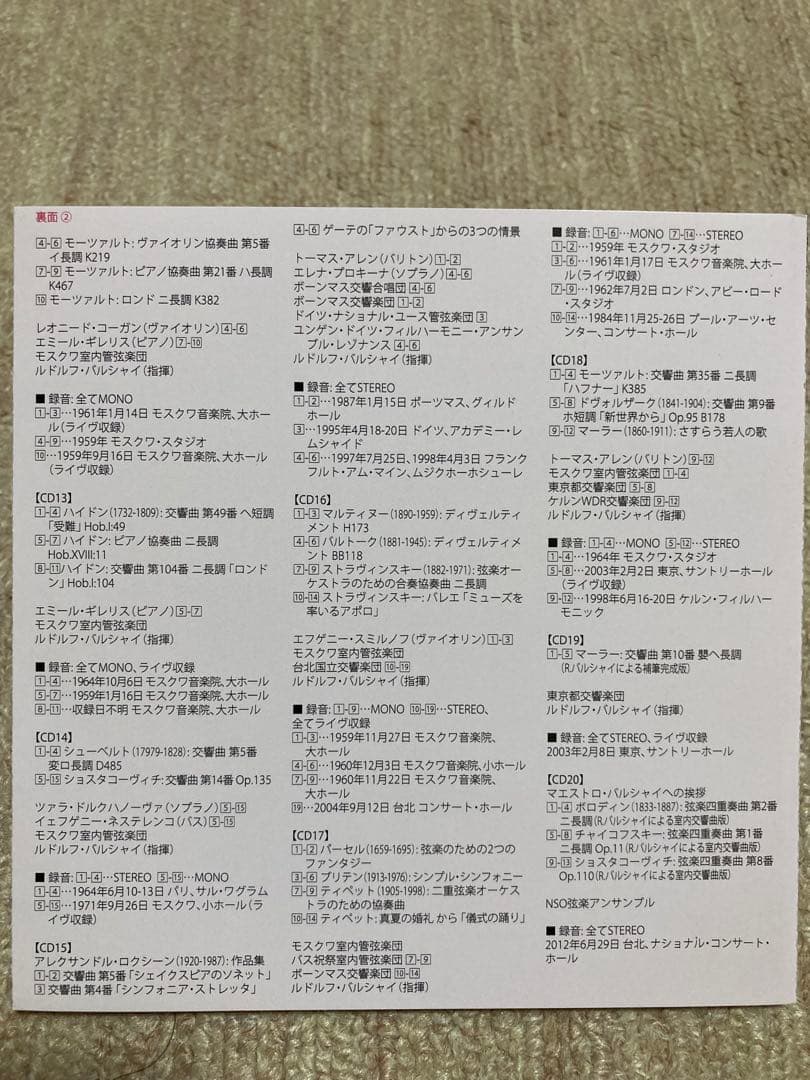 裏面②
④-⑥ モーツァルト: ヴァイオリン協奏曲 第5番
イ長調 K219
⑦-⑨ モーツァルト: ピアノ協奏曲 第21番 ハ長調
K467
⑩ モーツァルト: ロンド ニ長調 K382
レオニード・コーガン(ヴァイオリン)④-⑥
エミール・ギレリス(ピアノ)⑦-⑩
モスクワ室内管弦楽団
ルドルフ・バルシャイ(指揮)
■ 録音: 全てMONO
①-③…1961年1月14日 モスクワ音楽院、大ホー
ル(ライヴ収録)
④-⑨…1959年 モスクワ・スタジオ
⑩…1959年9月16日 モスクワ音楽院、大ホール
(ライヴ収録)
【CD13】
①-④ ハイドン(1732-1809): 交響曲 第49番 ヘ短調
「受難」 Hob.I:49
⑤-⑦ ハイドン: ピアノ協奏曲 ニ長調
Hob.XVIII:11
⑧-⑪ハイドン: 交響曲 第104番 ニ長調「ロンド
ン」Hob.I:104
エミール・ギレリス(ピアノ)⑤-⑦
モスクワ室内管弦楽団
ルドルフ・バルシャイ(指揮)
■ 録音: 全てMONO、ライヴ収録
①-④…1964年10月6日 モスクワ音楽院、大ホール
⑤-⑦…1959年1月16日 モスクワ音楽院、大ホール
⑧-⑪…収録日不明 モスクワ音楽院、大ホール
【CD14】
①-④ シューベルト(17979-1828): 交響曲 第5番
変ロ長調 D485
⑤-⑮ ショスタコーヴィチ: 交響曲 第14番 Op.135
ツァラ・ドルクハノーヴァ(ソプラノ)⑤-⑮
イェフゲニー・ネステレンコ(バス)⑤-⑮
モスクワ室内管弦楽団
ルドルフ・バルシャイ(指揮)
■ 録音: ①-④…STEREO ⑤-⑮…MONO
①-④…1964年6月10-13日 パリ、サル・ワグラム
⑤-⑮…1971年9月26日 モスクワ、小ホール(ラ
イヴ収録)
【CD15】
アレクサンドル・ロクシーン(1920-1987): 作品集
①-② 交響曲 第5番「シェイクスピアのソネット」
③ 交響曲 第4番「シンフォニア・ストレッタ」
④-⑥ ゲーテの「ファウスト」からの3つの情景
トーマス・アレン(バリトン)①-②
エレナ・プロキーナ(ソプラノ)④-⑥
ボーンマス交響合唱団 ④-⑥
ボーンマス交響楽団 ①-②
ドイツ・ナショナル・ユース管弦楽団 ③
ユンゲン・ドイツ・フィルハーモニー・アンサン
ブル・レゾナンス ④-⑥
ルドルフ・バルシャイ(指揮)
■ 録音: 全てSTEREO
①-②…1987年1月15日 ポーツマス、グィルド
ホール
③…1995年4月18-20日 ドイツ、アカデミー・レ
ムシャイド
④-⑥…1997年7月25日、1998年4月3日 フランク
フルト・アム・マイン、ムジクホーホシューレ
【CD16】
①-③ マルティヌー(1890-1959): ディヴェルティ
メント H173
④-⑥ バルトーク(1881-1945): ディヴェルティメ
ント BB118
⑦-⑨ ストラヴィンスキー(1882-1971): 弦楽オー
ケストラのための合奏協奏曲 ニ長調
⑩-⑭ ストラヴィンスキー: バレエ「ミューズを
率いるアポロ」
エフゲニー・スミルノフ(ヴァイオリン)①-③
モスクワ室内管弦楽団
台北国立交響楽団 ⑩-⑲
ルドルフ・バルシャイ(指揮)
■ 録音: ①-⑨…MONO ⑩-⑲…STEREO、
全てライヴ収録
①-③…1959年11月27日 モスクワ音楽院、
大ホール
④-⑥…1960年12月3日 モスクワ音楽院、小ホール
⑦-⑨…1960年11月22日 モスクワ音楽院、
大ホール
⑲…2004年9月12日 台北 コンサート・ホール
【CD17】
①-② パーセル(1659-1695): 弦楽のための2つの
ファンタジー
③-⑥ ブリテン(1913-1976): シンプル・シンフォニー
⑦-⑨ ティペット(1905-1998): 二重弦楽オーケス
トラのための協奏曲
⑩-⑭ ティペット: 真夏の婚礼 から「儀式の踊り」
モスクワ室内管弦楽団
バス祝祭室内管弦楽団 ⑦-⑨
ボーンマス交響楽団 ⑩-⑭
ルドルフ・バルシャイ(指揮)
■ 録音: ①-⑥…MONO ⑦-⑭…STEREO
①-②…1959年 モスクワ・スタジオ
③-⑥…1961年1月17日 モスクワ音楽院、大ホー
ル(ライヴ収録)
⑦-⑨…1962年7月2日 ロンドン、アビー・ロード
・スタジオ
⑩-⑭…1984年11月25-26日 プール・アーツ・セ
ンター、コンサート・ホール
【CD18】
①-④ モーツァルト: 交響曲 第35番 ニ長調
「ハフナー」K385
⑤-⑧ ドヴォルザーク(1841-1904): 交響曲 第9番
ホ短調「新世界から」Op.95 B178
⑨-⑫ マーラー(1860-1911): さすらう若人の歌
トーマス・アレン(バリトン)⑨-⑫
モスクワ室内管弦楽団 ①-④
東京都交響楽団 ⑤-⑧
ケルンWDR交響楽団 ⑨-⑫
ルドルフ・バルシャイ(指揮)
■ 録音: ①-④…MONO ⑤-⑫…STEREO
①-④…1964年 モスクワ・スタジオ
⑤-⑧…2003年2月2日 東京、サントリーホール
(ライヴ収録)
⑨-⑫…1998年6月16-20日 ケルン・フィルハー
モニック
【CD19】
①-⑤ マーラー: 交響曲 第10番 嬰ヘ長調
(R.バルシャイによる補筆完成版)
東京都交響楽団
ルドルフ・バルシャイ(指揮)
■ 録音: 全てSTEREO、ライヴ収録
2003年2月8日 東京、サントリーホール
【CD20】
マエストロ・バルシャイへの挨拶
①-④ ボロディン(1833-1887): 弦楽四重奏曲 第2番
ニ長調(R.バルシャイによる室内交響曲版)
⑤-⑧ チャイコフスキー: 弦楽四重奏曲 第1番
ニ長調 Op.11(R.バルシャイによる室内交響曲版)
⑨-⑬ ショスタコーヴィチ: 弦楽四重奏曲 第8番
Op.110(R.バルシャイによる室内交響曲版)
NSO弦楽アンサンブル
■ 録音: 全てSTEREO
2012年6月29日 台北、ナショナル・コンサート・
ホール